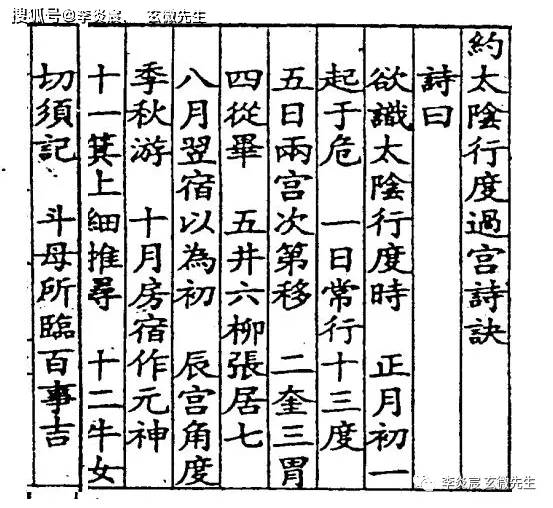 搜狐号@李炎宸、玄微先生
約太陰行度過宮詩訣
詩曰
欲識太陰行度時 正月初一
起于危 一日常行十三度
五日兩宮次第移 二奎三胃
四從畢 五井六柳張居七
八月翌宿以為初 辰宮角度
季秋游 十月房宿作元神
十一箕上細推尋 十二牛女
切須記 斗母所臨百事吉
李炎宸 玄微先生